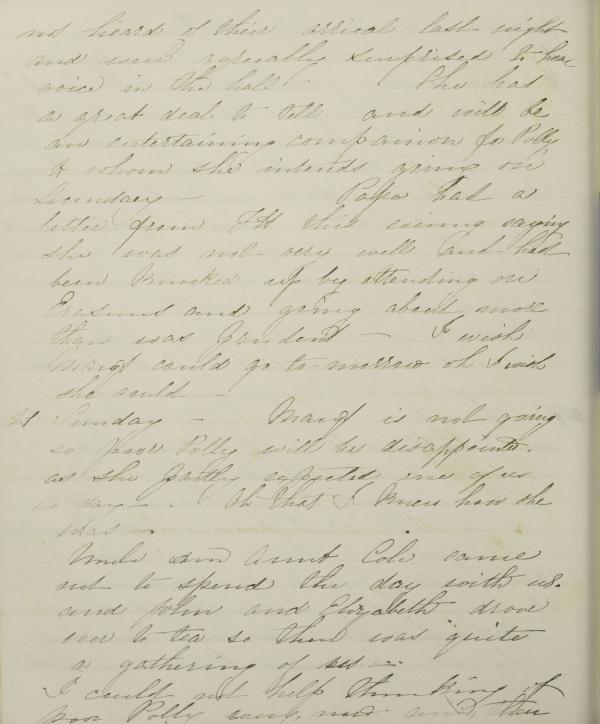 not heard of their arrival last night
and were agreeably surprised to hear
voice in the hall - She has
a great deal to tell and will be
an entertaining companion for Polly
to whom she intends going on
- Papa had a
letter from this evening saying
she was not very well and had
been knocked up by attending on
Erasmus and going about more
than was prudent - I wish
Margt could go to-morrow oh I wish
she could -
21 Sunday - Margt is not going
so poor Polly will be disappointed.
as she partly expected one of us
to day - . Oh that I knew how she
was -
Uncle and Aunt Cole came
out to spend the day with us.
and John and Elizabeth drove
over to tea so there was quite
a gathering of us -
I could not help thinking of
poor Polly and then